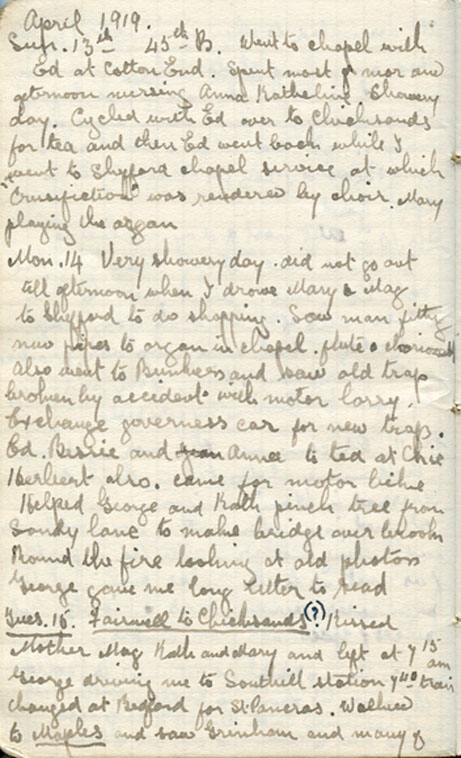 April 1919.
Sun. 13th 45th B. Went to chapel with
Ed at Cotton End. Spent most of mor and
afternoon nursing Anna Katheline. Showery
day. Cycled with Ed over to Chicksands
for tea and then Ed went back while I
went to Shefford chapel service at which
"Crusifiction" was rendered by choir. Mary
playing the organ
Mon. 14 Very showery day. did not go out
till afternoon when I drove Mary & Mag
to Shefford to do shopping. Saw man fitting
new pipes to organ in chapel. flute &
Also went to Bunkers and saw old trap
broken by accident with motor lorry.
Exchange governess car for new trap.
Ed. Bessie and Annie to ted at Chic
Herbert also. came for motor bike
Helped George and Kath pinch tree from
Sandy lane to make bridge over brook
Round the fire looking at old photos
George gave me long letter to read
Tues. 15. Fairwell to Chicksands (?) Kissed
Mother Mag Kath and Mary and left at 7 15 am
George driving me to Southill station 7 40 train
changed at Bedford for St. Pancras. Walked
to Maples and saw Grinham and many of